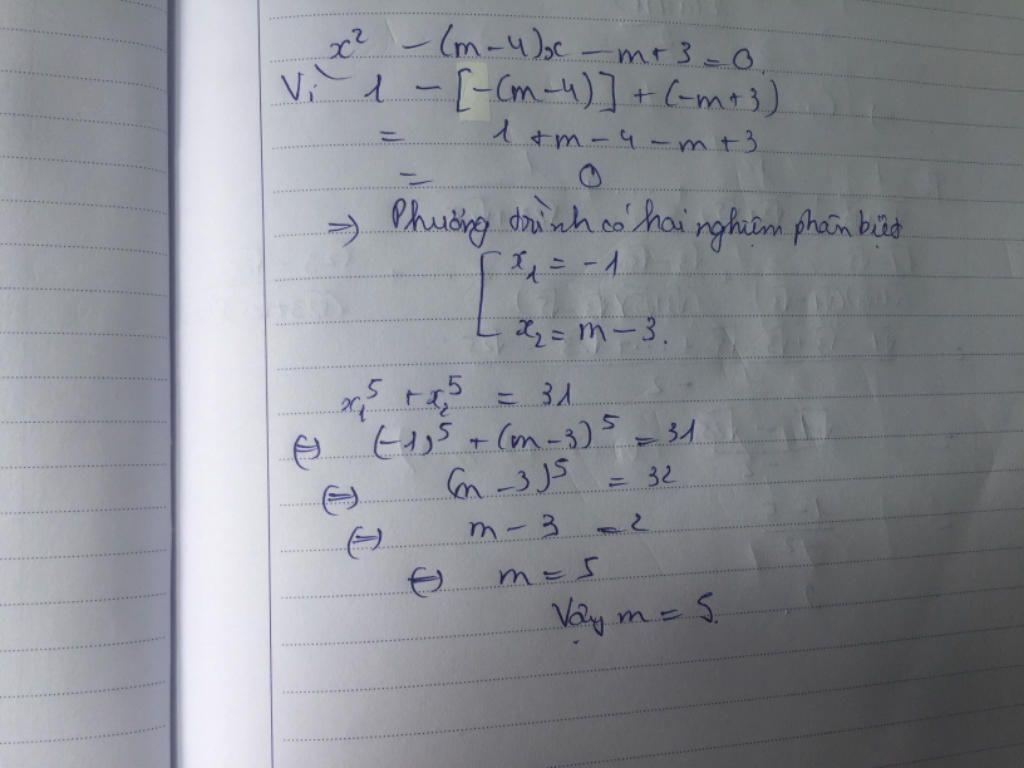 x² - (m-4)x - m+3 = 0.
Vì 1 - [-(m-4)] + (-m+3)
= 1 + m - 4 - m + 3
= 0
⇒ Phương trình có hai nghiệm phân biệt
[ x₁ = -1
x₂ = m - 3.
x₁⁵ + x₂⁵ = 31
⇔ (-1)⁵ + (m-3)⁵ = 31
⇔ (m-3)⁵ = 32
⇔ m - 3 = 2
⇔ m = 5
Vậy m = 5.